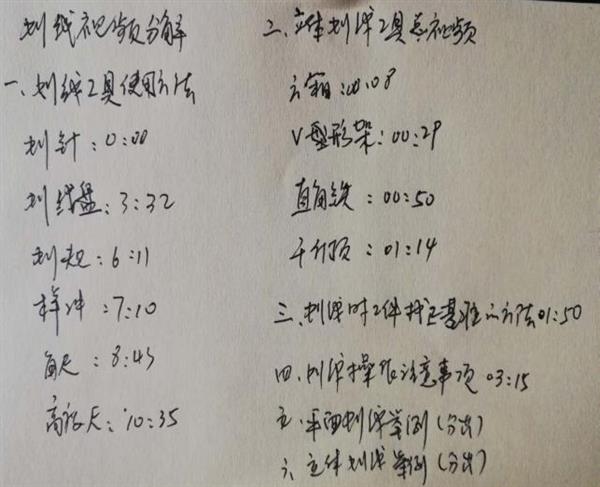 划线视频分解
一、划线工具使用方法
划针：0:00
划线盘：3:32
划规：6:11
样冲：7:10
角尺：8:43
高度尺：10:35
二、立体划线工具类视频
方箱：00:08
V型形架：00:29
直角铁：00:50
千斤顶：01:14
三、划线时工件找正基准的方法01:50
四、划线操作注意事项 03:15
五、平面划线举例（分出）
六、立体划线举例（分出）